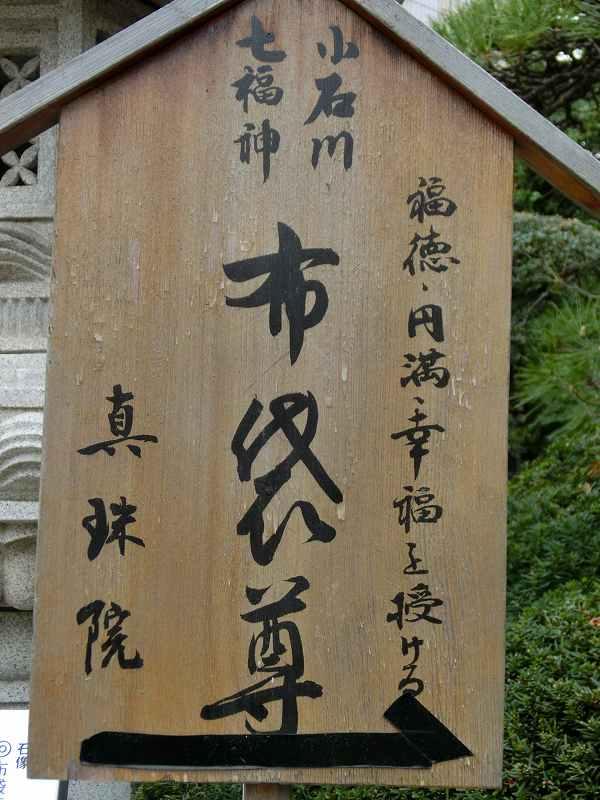 小石川
七福神
福徳、円満、幸福を授ける
布袋尊
真珠院
石像